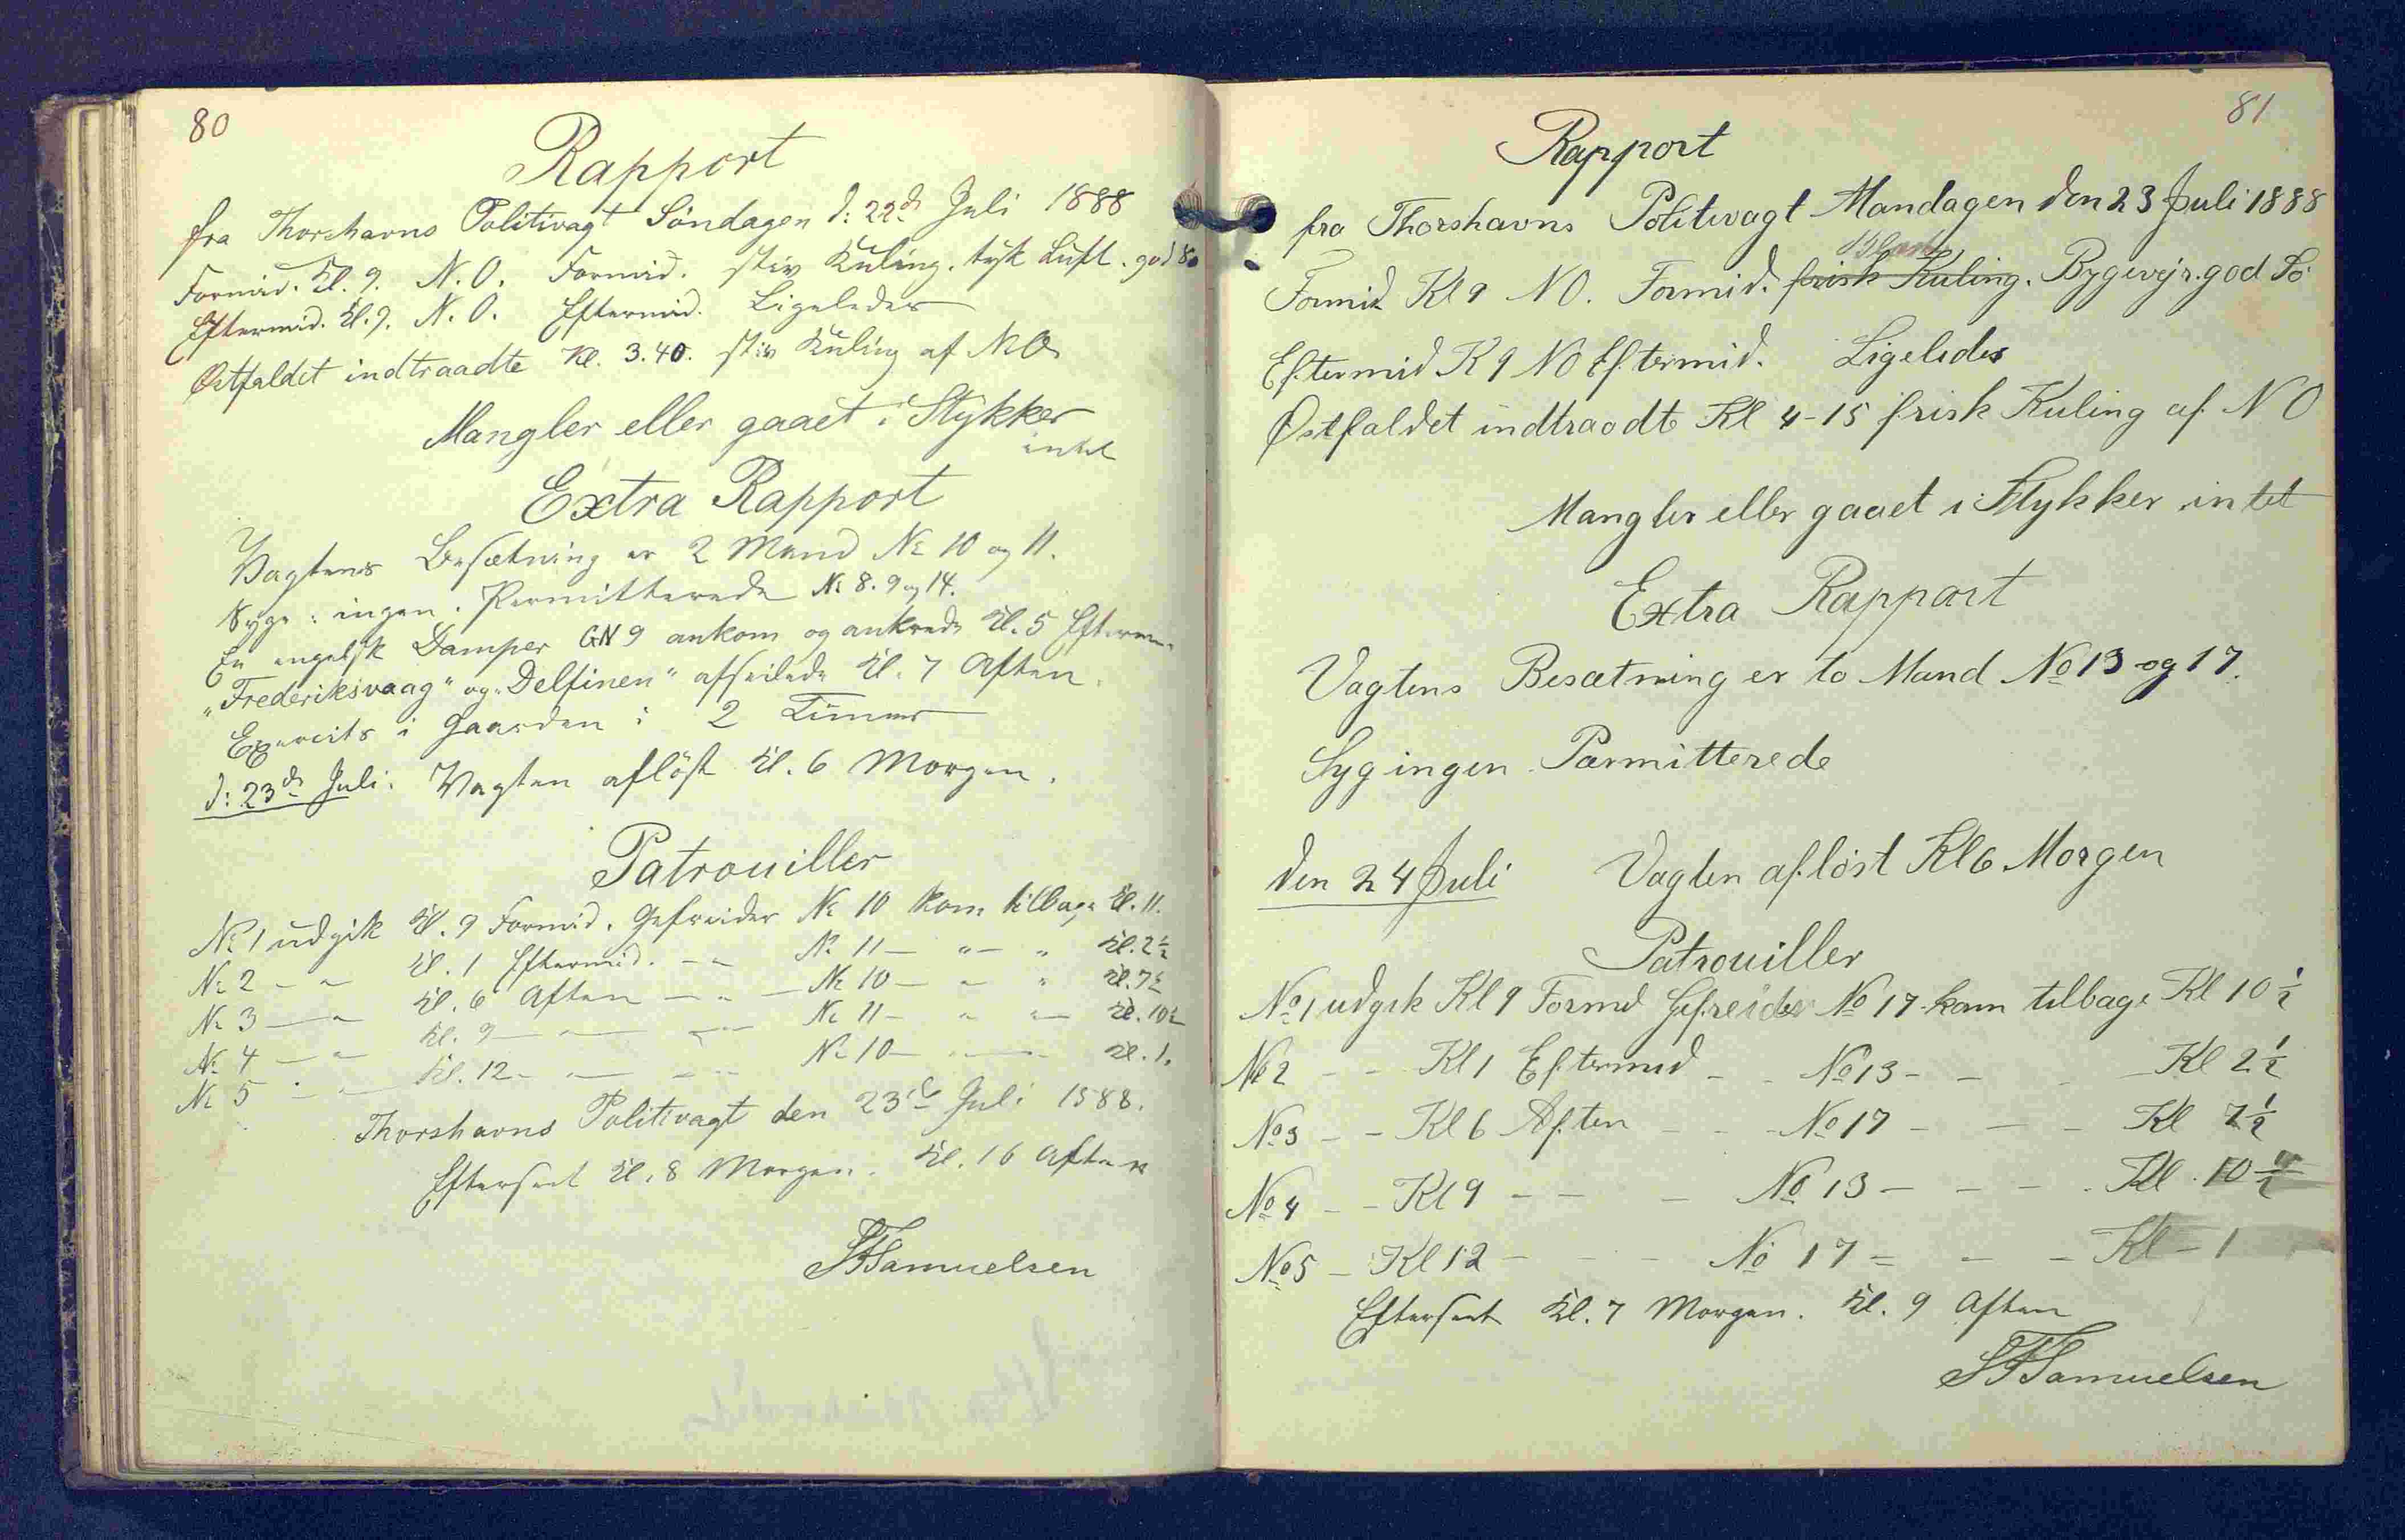 80
Rapport
fra Thorshavns Politivagt Söndagen d: 22de Juli 1888
Formid. Kl. 9. N.O. Formid. stiv Kuling. tyk Luft. god So
Eftermid. Kl. 9. N.O. Eftermid. Ligeledes
Østfaldet indtraadte Kl. 3.40. stiv Kuling af NO
Mangler eller gaaet i Stykker
intet
Extra Rapport
Vagtens Besætning er 2 Mand No 10 og 11.
Syge: ingen. Permitterede No 8. 9 og 14.
En engelsk Damper GN 9 ankom og ankrede Kl. 5 Efterm.
"Frederiksvaag" og "Delfinen" afseilede Kl. 7 Aften.
Exercits i Gaarden i 2 Timer
d: 23de Juli. Vagten aflöst Kl. 6 Morgen.
Patrouiller
No 1 udgik Kl. 9 Formid. Gefreider No 10 kom tilbage Kl. 11.
No 2 - " Kl. 1 Eftermid. - " No 11 - " - " Kl. 2½
No 3 - " Kl. 6 Aften - " - No 10 - " " Kl. 7½
No 4 - " Kl. 9 - " - No 11 - " - Kl. 10½
No 5 - " Kl. 12 - " - No 10 - " - Kl. 1.
Thorshavns Politivagt den 23de Juli 1888.
Efterseet Kl. 8 Morgen. Kl. 16 Aften
Samuelsen
81
Rapport
fra Thorshavns Politivagt Mandagen den 23 Juli 1888
Formid Kl 9 NO. Formid. frisk Kuling. Bygevejr. god So
Eftermid K 9 NO Eftermid. Ligeledes
Østfaldet indtraadte Kl 4-15 frisk Kuling af NO
Mangler eller gaaet i Stykker intet
Extra Rapport
Vagtens Besætning er to Mand No 13 og 17.
Syg ingen Parmitterede
den 24 Juli Vagten afløst Kl 6 Morgen
Patrouiller
No 1 udgik Kl 9 Formd Gefreider No 17 kom tilbage Kl 10½
No 2 - - Kl 1 Eftermid - - No 13 - - - Kl 2½
No 3 - - Kl 6 Aften - - No 17 - - - Kl 7½
No 4 - - Kl 9 - - - No 13 - - - Kl. 10½
No 5 - Kl 12 - - - No 17 - - - Kl - 1
Efterseet Kl. 7 Morgen. Kl. 9 Aften
Samuelsen